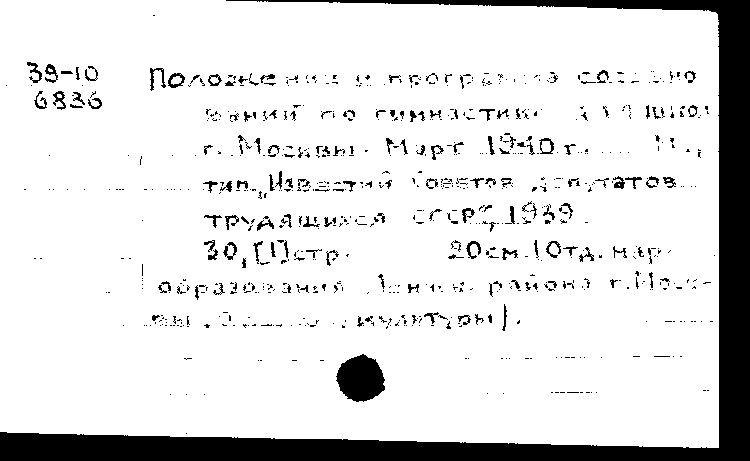 39-10
6836
Положение и программа соревно
ваний по гимнастике для школ
г. Москвы. Март 1940 г. М.,
тип. „Известий Советов депутатов
трудящихся СССР", 1939.
30, [1] стр. 20 см. (Отд. нар.
образования Ленинск. района г. Моск-
вы. культуры).